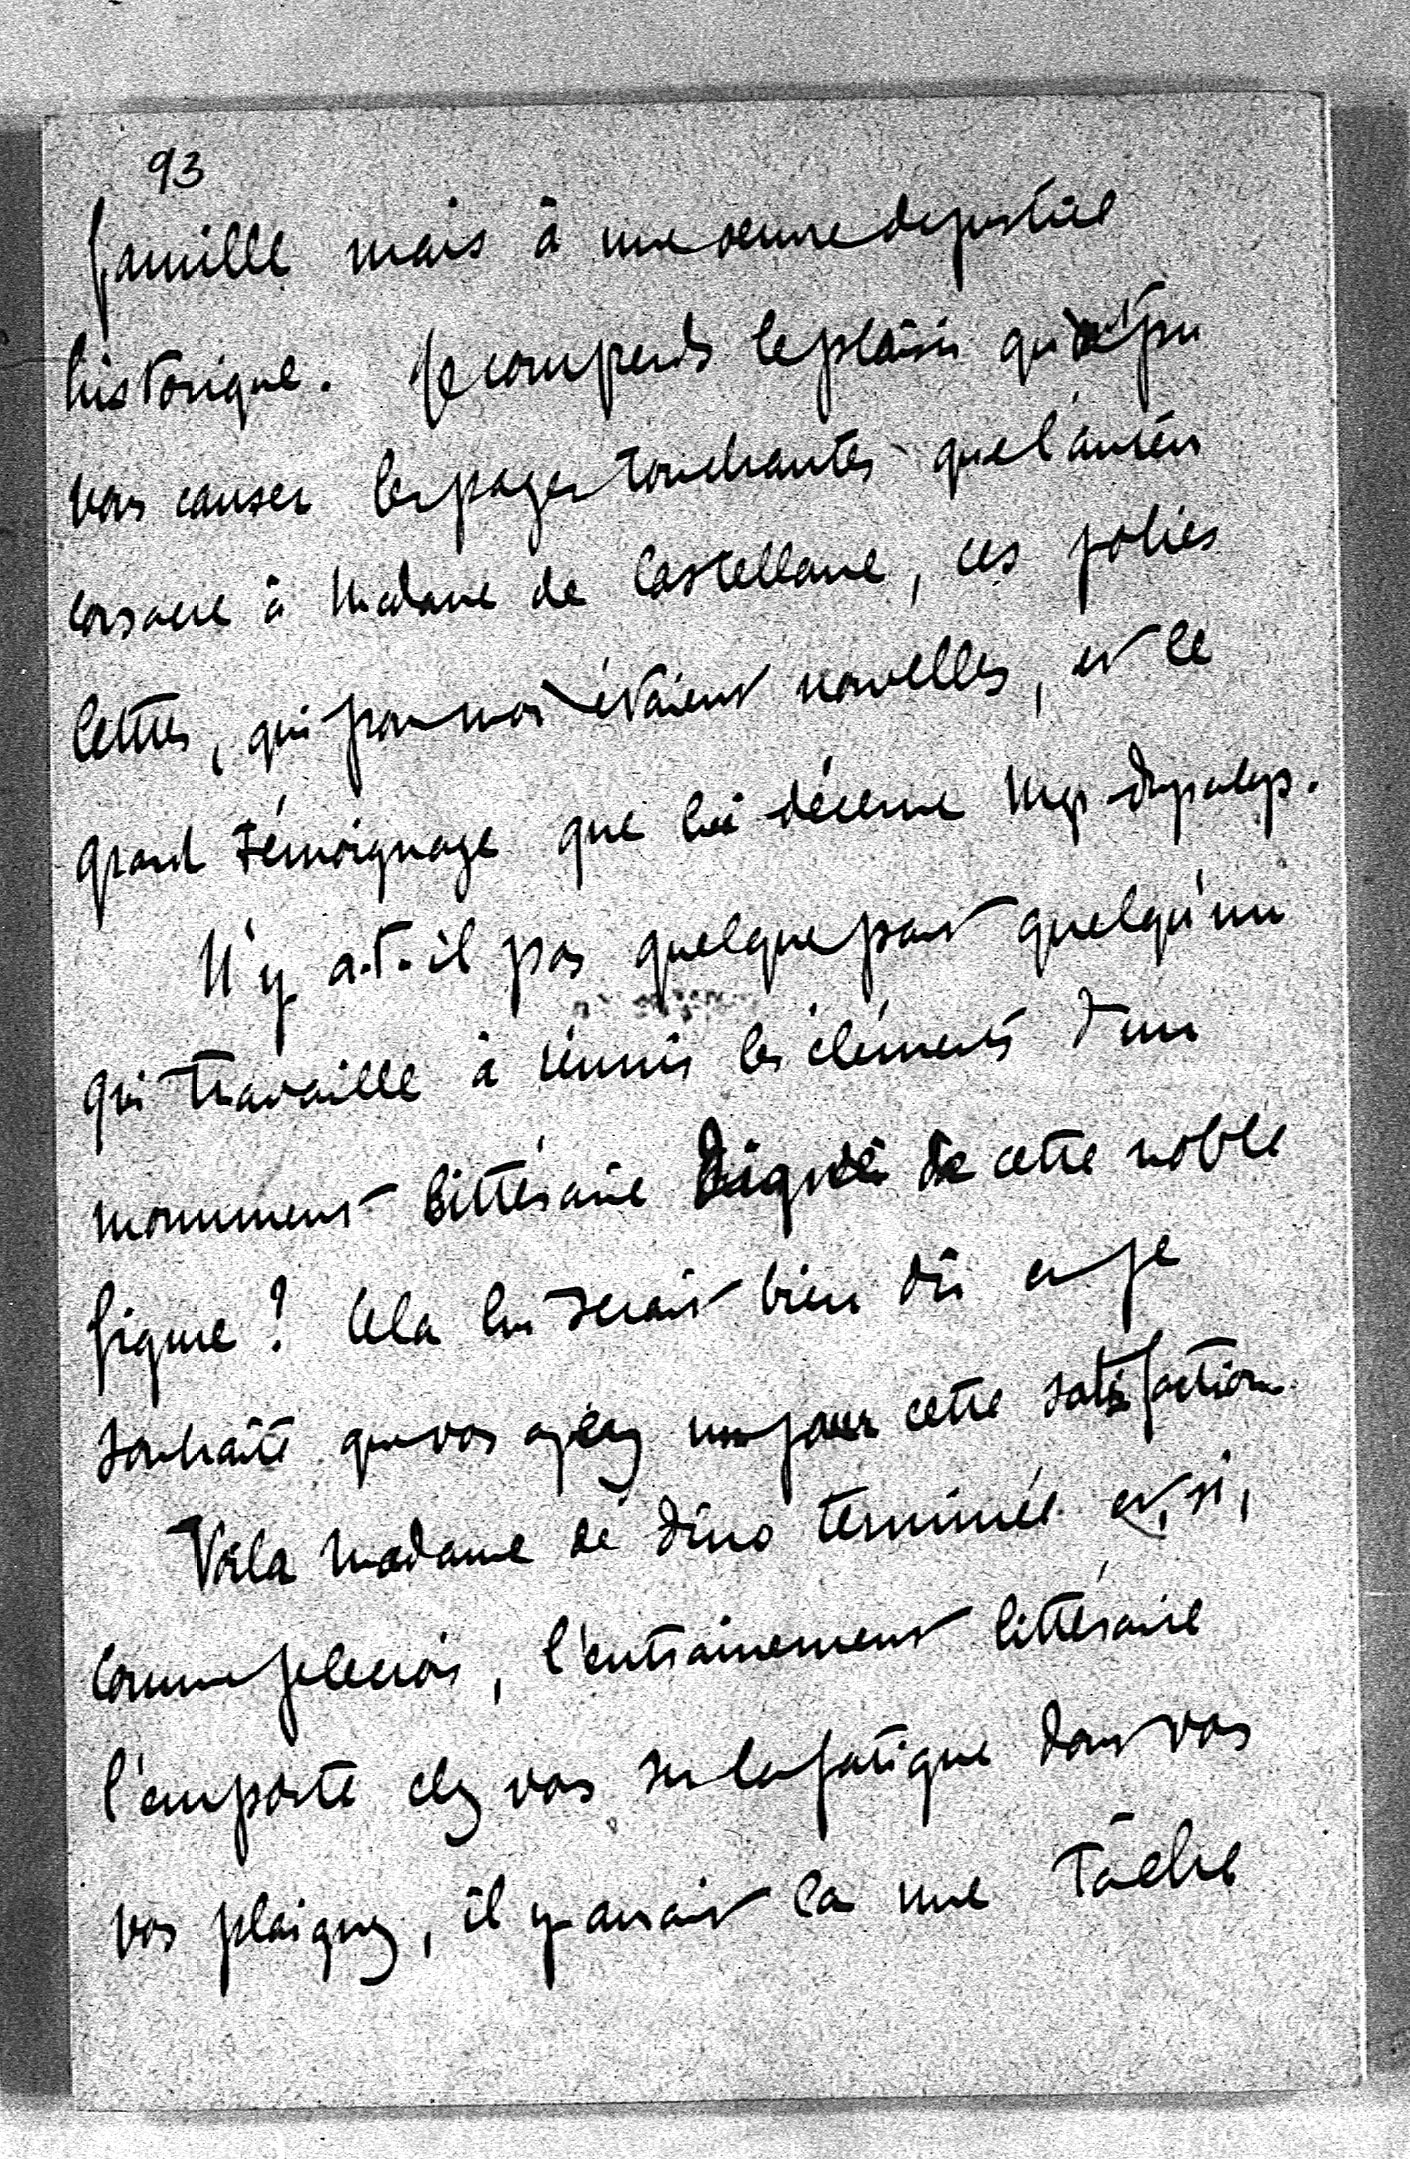 93
famille mais à une oeuvre de justice
historique. Je comprends le plaisir qu'ont pu
vous causer les pages touchantes que l'auteur
consacre à Madame de Castellane, ces jolies
lettres, qui pour moi étaient nouvelles, et le
grand témoignage que lui décerne Mgr Dupanloup.
N'y a-t-il pas quelque part quelqu'un
qui travaille à réunir les éléments d'un
monument littéraire digne de cette noble
figure ? Cela lui serait bien dû et je
souhaite que vous ayez un jour cette satisfaction
Voilà Madame de Dino terminée et, si,
comme je le crois, l'entrainement littéraire
l'emporte chez vous sur la fatigue dont vous
vous plaignez, il y aurait là une tâche